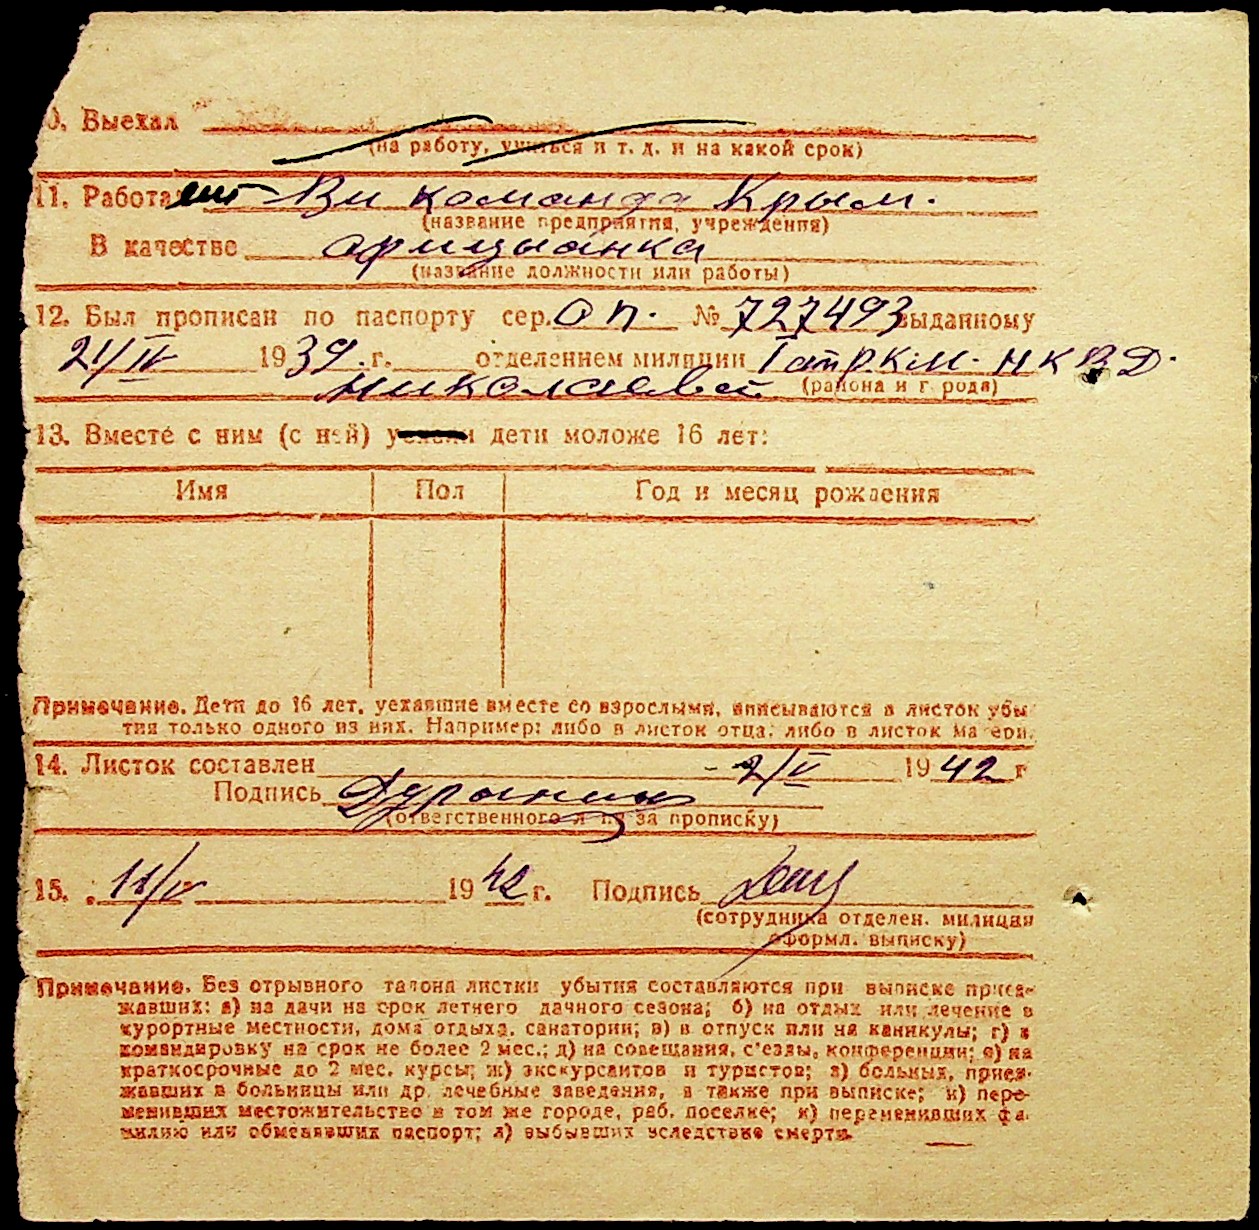 0. Выехал
(на работу, учиться и т. д. и на какой срок)
11. Работает Ви команда Крым.
(название предприятия, учреждения)
В качестве официанка
(название должности или работы)
12. Был прописан по паспорту сер. ОП. № 727493 выданному
21/IV 1939. г. отделением милиции РКМ. НКВД.
Николаевой (района и города)
13. Вместе с ним (с ней) уехали дети моложе 16 лет:
Имя Пол Год и месяц рождения
Примечание. Дети до 16 лет, уехавшие вместе со взрослыми, вписываются в листок убы
тия только одного из них. Например: либо в листок отца, либо в листок матери.
14. Листок составлен 2/V 1942 г
Подпись
(ответственного лица за прописку)
15. 11/V 1942 г. Подпись
(сотрудника отделен. милиции
оформл. выписку)
Примечание. Без отрывного талона листки убытия составляются при выписке приез-
жавших: а) на дачи на срок летнего дачного сезона; б) на отдых или лечение в
курортные местности, дома отдыха, санатории; в) в отпуск или на каникулы; г) в
командировку на срок не более 2 мес.; д) на совещания, с'езды, конференции; е) на
краткосрочные до 2 мес. курсы; ж) экскурсантов и туристов; з) больных, приез-
жавших в больницы или др. лечебные заведения, а также при выписке; и) пере-
менивших местожительство в том же городе, раб. поселке; к) переменивших фа-
милию или обменявших паспорт; л) выбывших вследствие смерти.